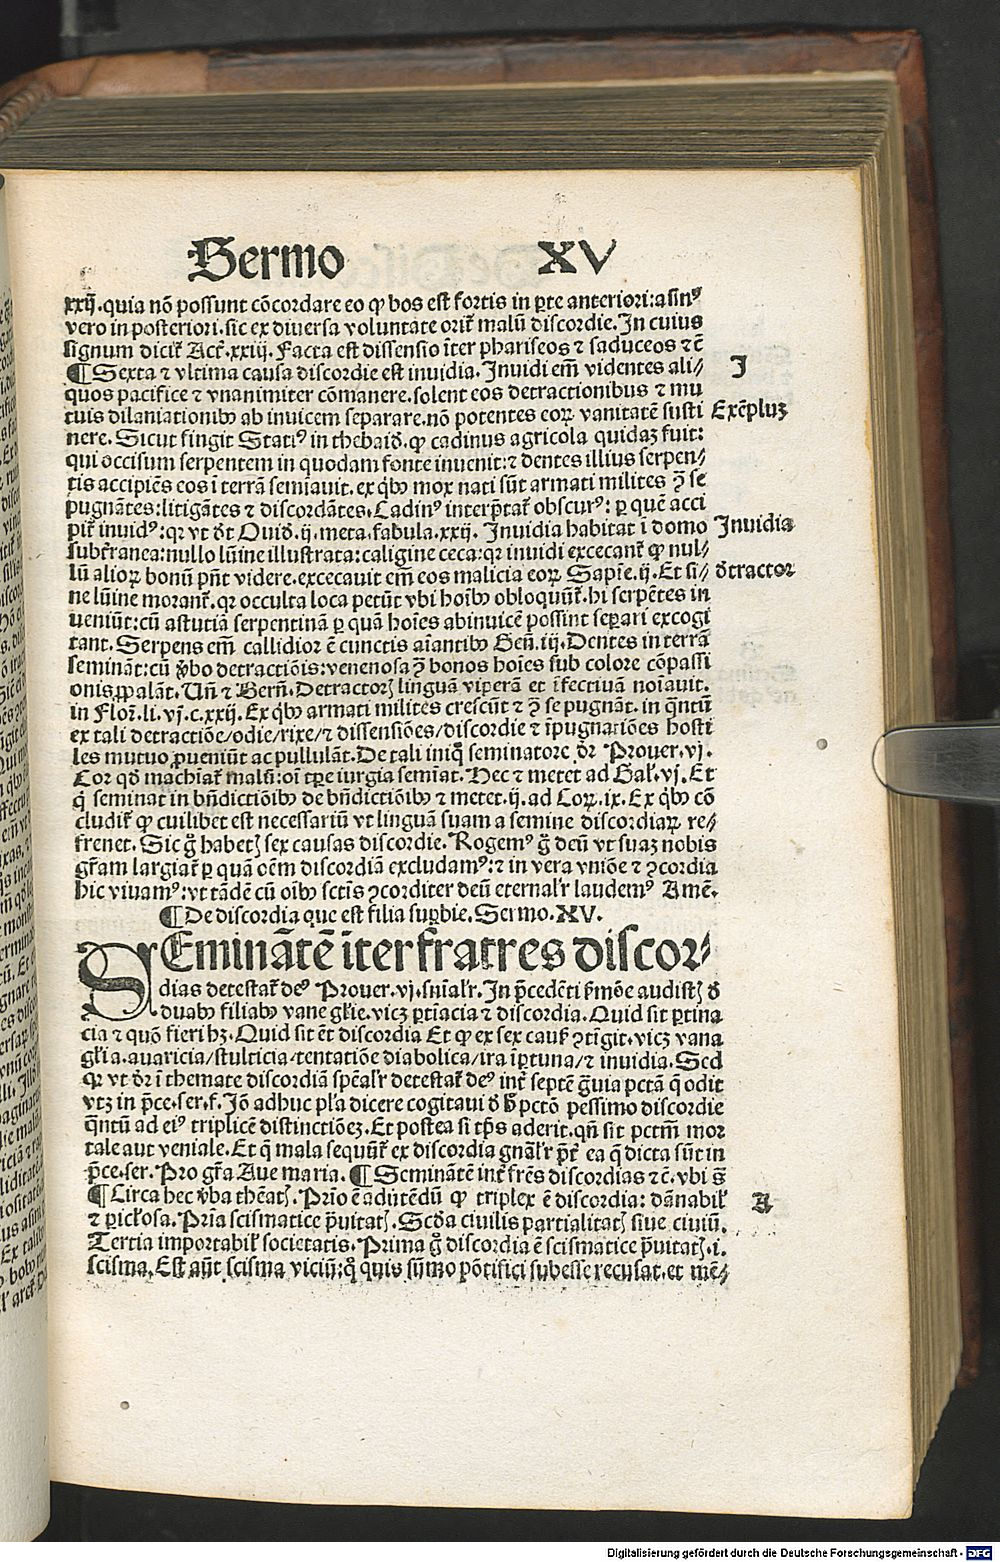 Sermo XV
xxij. quia nõ possunt cõcordare eo ꝙ bos est fortis in ꝑte anteriori: asinꝰ
vero in posteriori. sic ex diuersa voluntate orit᷑ malũ discordie. In cuius
signum dicit᷑ Act᷑. xxiij. Facta est dissensio ĩter phariseos ⁊ saduceos ⁊ c̃
¶ Sexta ⁊ vltima causa discordie est inuidia. Inuidi em̃ videntes ali⸗
I
quos pacifice ⁊ vnanimiter cõmanere. solent eos detractionibus ⁊ mu
tuis dilaniationibꝰ ab inuicem separare. nõ potentes eoꝝ vanitatẽ susti
Exẽpluꝫ
nere. Sicut fingit Statiꝰ in thebaid̃. ꝙ cadinus agricola quidaꝫ fuit:
qui occisum serpentem in quodam fonte inuenit: ⁊ dentes illius serpen⸗
tis accipiẽs eos ĩ terrã semĩauit. ex qͥbꝰ mox nati sũt armati milites ꝯ̃ se
pugnãtes: litigãtes ⁊ discordãtes. Cadinꝰ interp̃tat᷑ obscurꝰ: ꝑ quẽ acci
pit᷑ inuidꝰ: qꝛ vt d̃t Ouid̃. ij. meta. fabula. xxij. Inuidia habitat ĩ domo
Inuidia
subt᷑ranea: nullo lũine illustrata: caligine ceca: qꝛ inuidi excecant᷑ ꝙ nul⸗
lũ alioꝝ bonũ pñt videre. excecauit em̃ eos malicia eoꝝ Sapĩe. ij. Et si⸗
d̃tractor
ne lũine morant᷑. qꝛ occulta loca petũt vbi hoĩbꝰ obloquũt᷑. hi serpẽtes in
ueniũt: cũ astutiã serpentinã ꝑ quã hoĩes abinuicẽ possint seꝑari excogi
tant. Serpens em̃ callidior ẽ cunctis aĩantibꝰ Geñ. iij. Dentes in terrã
seminãt: cũ v̾bo detractiõis: venenosa ꝯ̃ bonos hoĩes sub colore cõpassi
onis ꝓpalãt. Uñ ⁊ Berñ. Detractorꝭ linguã viperã et ĩfectiuã noĩauit.
in Floꝝ. li. vj. c. xxij. Ex qͥbꝰ armati milites crescũt ⁊ ꝯ̃ se pugnãt. in qͣntũ
ex tali detractiõe/odie/rixe/⁊ dissensiões/discordie ⁊ ĩpugnariões hosti
les mutuo ꝓueniũt ac pullulãt. De tali iniqͦ seminatore d̃r Prouer. vj.
Cor qd̃ machiat᷑ malũ: oĩ tꝑe iurgia semĩat. Hec ⁊ metet ad Gal᷑. vj. Et
qͥ seminat in bñdictiõibꝰ de bñdictiõibꝰ ⁊ metet. ij. ad Coꝝ. ix. Ex qͥbꝰ cõ
cludit᷑ ꝙ cuilibet est necessariũ vt linguã suam a semine discordiaꝝ re⸗
frenet. Sic g̃ habetꝭ sex causas discordie. Rogemꝰ g̃ deũ vt suaꝫ nobis
gr̃am largiat᷑ ꝑ quã oẽm discordiã excludamꝰ: ⁊ in vera vniõe ⁊ ꝯcordia
hic viuamꝰ: vt tãdẽ cũ oĩbꝰ sctĩs ꝯcorditer deũ eternal᷑r laudemꝰ Amẽ.
¶ De discordia que est filia suꝑbie. Sermo. XV.
SEminãtẽ ĩter fratres discor⸗
dias detestat᷑ deꝰ Prouer. vj. sñial᷑r. In p̃cedẽti ẜmõe audistꝭ d̃
duabꝰ filiabꝰ vane gl᷑ie. vicꝫ ꝑtĩacia ⁊ discordia. Quid sit ꝑtina
cia ⁊ quõ fieri hꝫ. Quid sit ẽt discordia Et ꝙ ex sex cauẜ ꝯtĩgit. vicꝫ vana
gl᷑ia. auaricia/stulticia/tentatiõe diabolica/ira ĩꝑtuna/⁊ inuidia. Sed
qꝛ vt d̃r ĩ themate discordiã spẽal᷑r detestat᷑ deꝰ int᷑ septẽ g̃uia pctã q̃ odit
vtꝫ in p̃ce. ser. f. Jõ adhuc pl᷑a dicere cogitaui d̃ h̾ pctõ pessimo discordie
qͣntũ ad eiꝰ triplicẽ distinctiõeꝫ. Et postea si tp̃s aderit. qñ sit pctm̃ mor
tale aut veniale. Et q̃ mala sequũt᷑ ex discordia gñal᷑r pt᷑ ea q̃ dicta sũt in
p̃ce. ser. Pro gr̃a Aue maria. ¶ Seminãtẽ int᷑ fr̃es discordias ⁊c̃. vbi s̃
¶ Circa hec v̾ba thẽatꝭ. Prĩo ẽ adũtẽdũ ꝙ triplex ẽ discordia: dãnabil᷑
A
⁊ ꝑicl᷑osa. Prĩa scismatice p̃uitatꝭ. Scd̃a ciuilis partialitatꝭ siue ciuiũ.
Tertia importabil᷑ societatis. Prima g̃ discordia ẽ scismatice p̃uitatꝭ. i.
scisma. Est aũt scisma viciũ: qͦ quis sũmo põtifici subesse recusat. et mẽ⸗
Digitalisierung gefördert durch die Deutsche Forschungsgemeinschaft - DFG